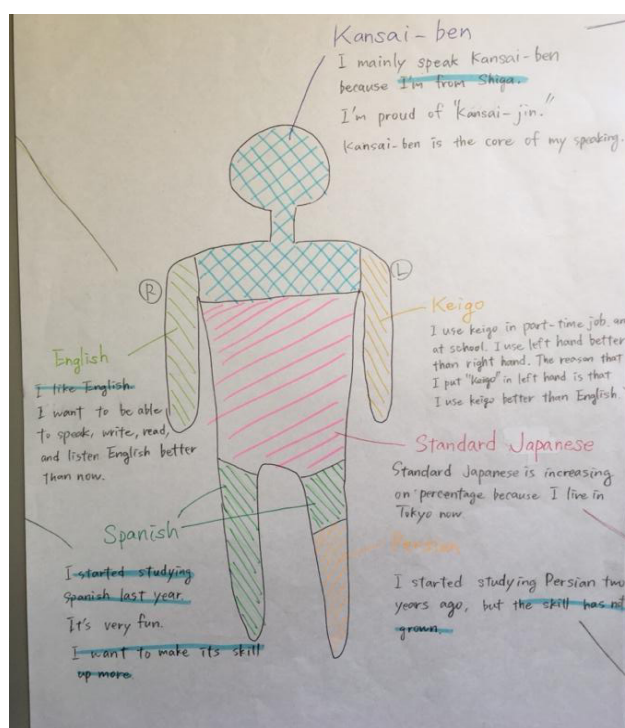 Kansai-ben
I mainly speak Kansai-ben
because I'm from Shiga.
I'm proud of "Kansai-jin."
Kansai-ben is the core of my speaking.
R
L
Keigo
I use keigo in part-time job. an
at school. I use left hand better
than right hand. The reason that
I put "keigo" in left hand is that
I use keigo better than English.
English
I like English.
I want to be able
to speak, write, read,
and listen English better
than now.
Standard Japanese
Standard Japanese is increasing
on percentage because I live in
Tokyo now
Spanish
I started studying
Spanish last year.
It's very fun.
I want to make its skill
up more
Persian
I started studying Persian two
years ago, but the skill has n
grown.